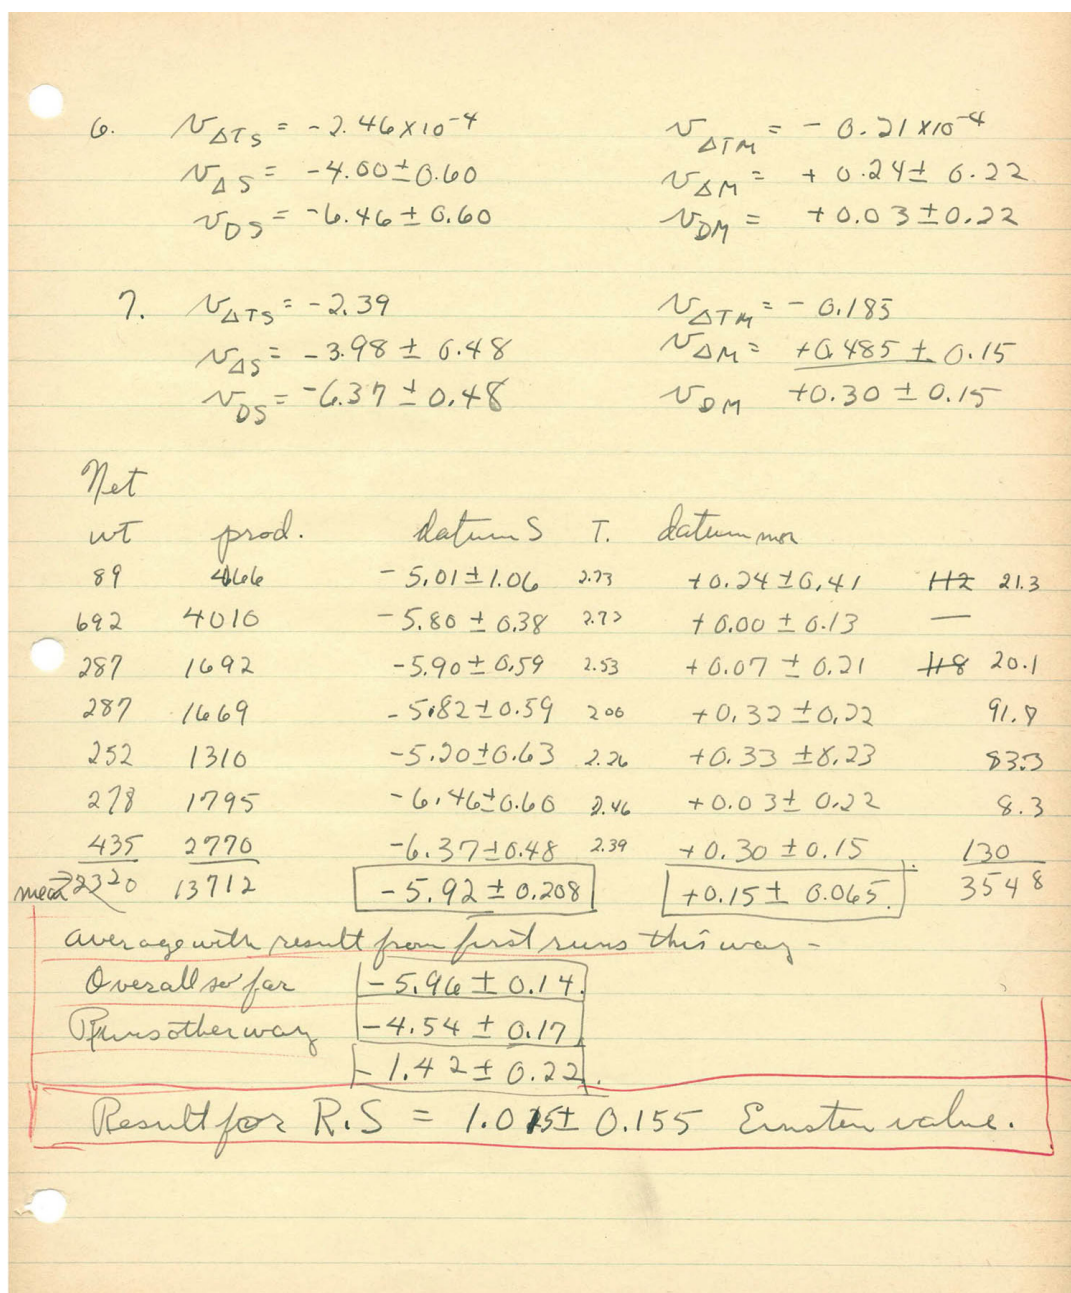 6. v_ΔTS = -2.46 x 10⁻⁴ v_ΔTM = -0.21 x 10⁻⁴
v_ΔS = -4.00 ± 0.60 v_ΔM = +0.24 ± 0.22
v_DS = -6.46 ± 0.60 v_DM = +0.03 ± 0.22
7. v_ΔTS = -2.39 v_ΔTM = -0.185
v_ΔS = -3.98 ± 0.48 v_ΔM = +0.485 ± 0.15
v_DS = -6.37 ± 0.48 v_DM +0.30 ± 0.15
Net
wt prod. datum S T. datum mon
89 466 -5.01 ± 1.06 2.73 +0.24 ± 0.41 112 21.3
692 4010 -5.80 ± 0.38 2.73 +0.00 ± 0.13 —
287 1692 -5.90 ± 0.59 2.53 +0.07 ± 0.21 118 20.1
287 1669 -5.82 ± 0.59 200 +0.32 ± 0.22 91.8
252 1310 -5.20 ± 0.63 2.26 +0.33 ± 0.23 83.3
278 1795 -6.46 ± 0.60 2.46 +0.03 ± 0.22 8.3
435 2770 -6.37 ± 0.48 2.39 +0.30 ± 0.15 130
mean 2320 13712 -5.92 ± 0.208 +0.15 ± 0.065 354 8
average with result from first runs this way -
Overall so far -5.96 ± 0.14
Runs other way -4.54 ± 0.17
-1.42 ± 0.22
Result for R.S = 1.015 ± 0.155 Einsten value.